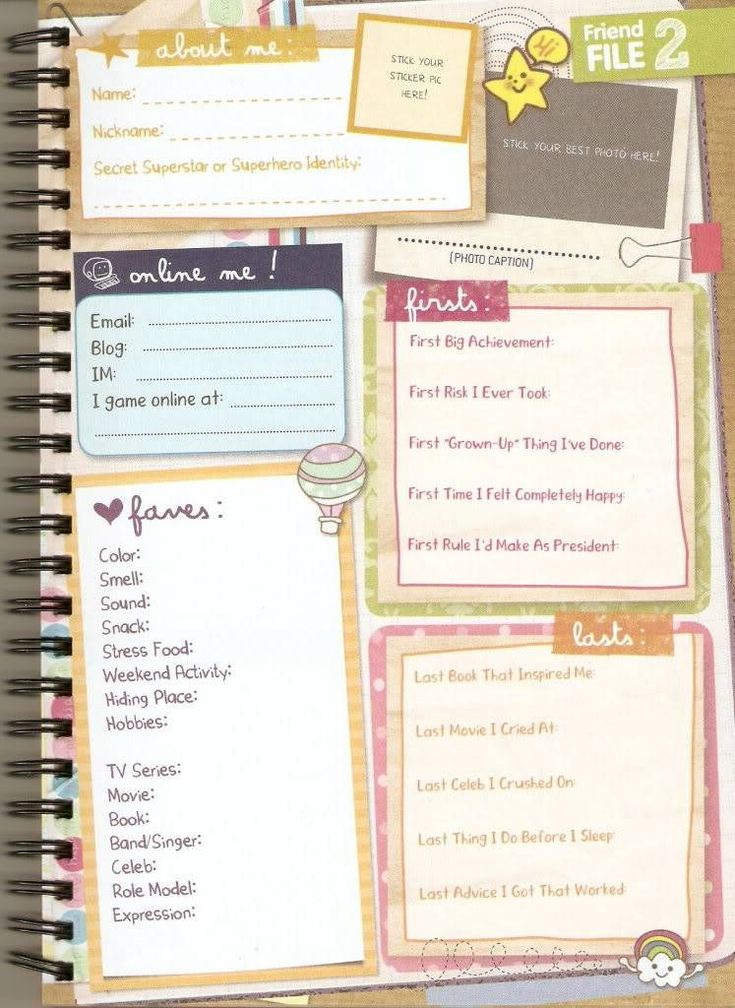 about me:
Name:
Nickname:
Secret Superstar or Superhero Identity:
STICK YOUR
STICKER PIC
HERE!
Hi
Friend
FILE 2
STICK YOUR BEST PHOTO HERE!
(PHOTO CAPTION)
online me!
Email:
Blog:
IM:
I game online at:
faves:
Color:
Smell:
Sound:
Snack:
Stress Food:
Weekend Activity:
Hiding Place:
Hobbies:
TV Series:
Movie:
Book:
Band/Singer:
Celeb:
Role Model:
Expression:
firsts:
First Big Achievement:
First Risk I Ever Took:
First "Grown-Up" Thing I've Done:
First Time I Felt Completely Happy:
First Rule I'd Make As President:
lasts:
Last Book That Inspired Me:
Last Movie I Cried At:
Last Celeb I Crushed On:
Last Thing I Do Before I Sleep:
Last Advice I Got That Worked: